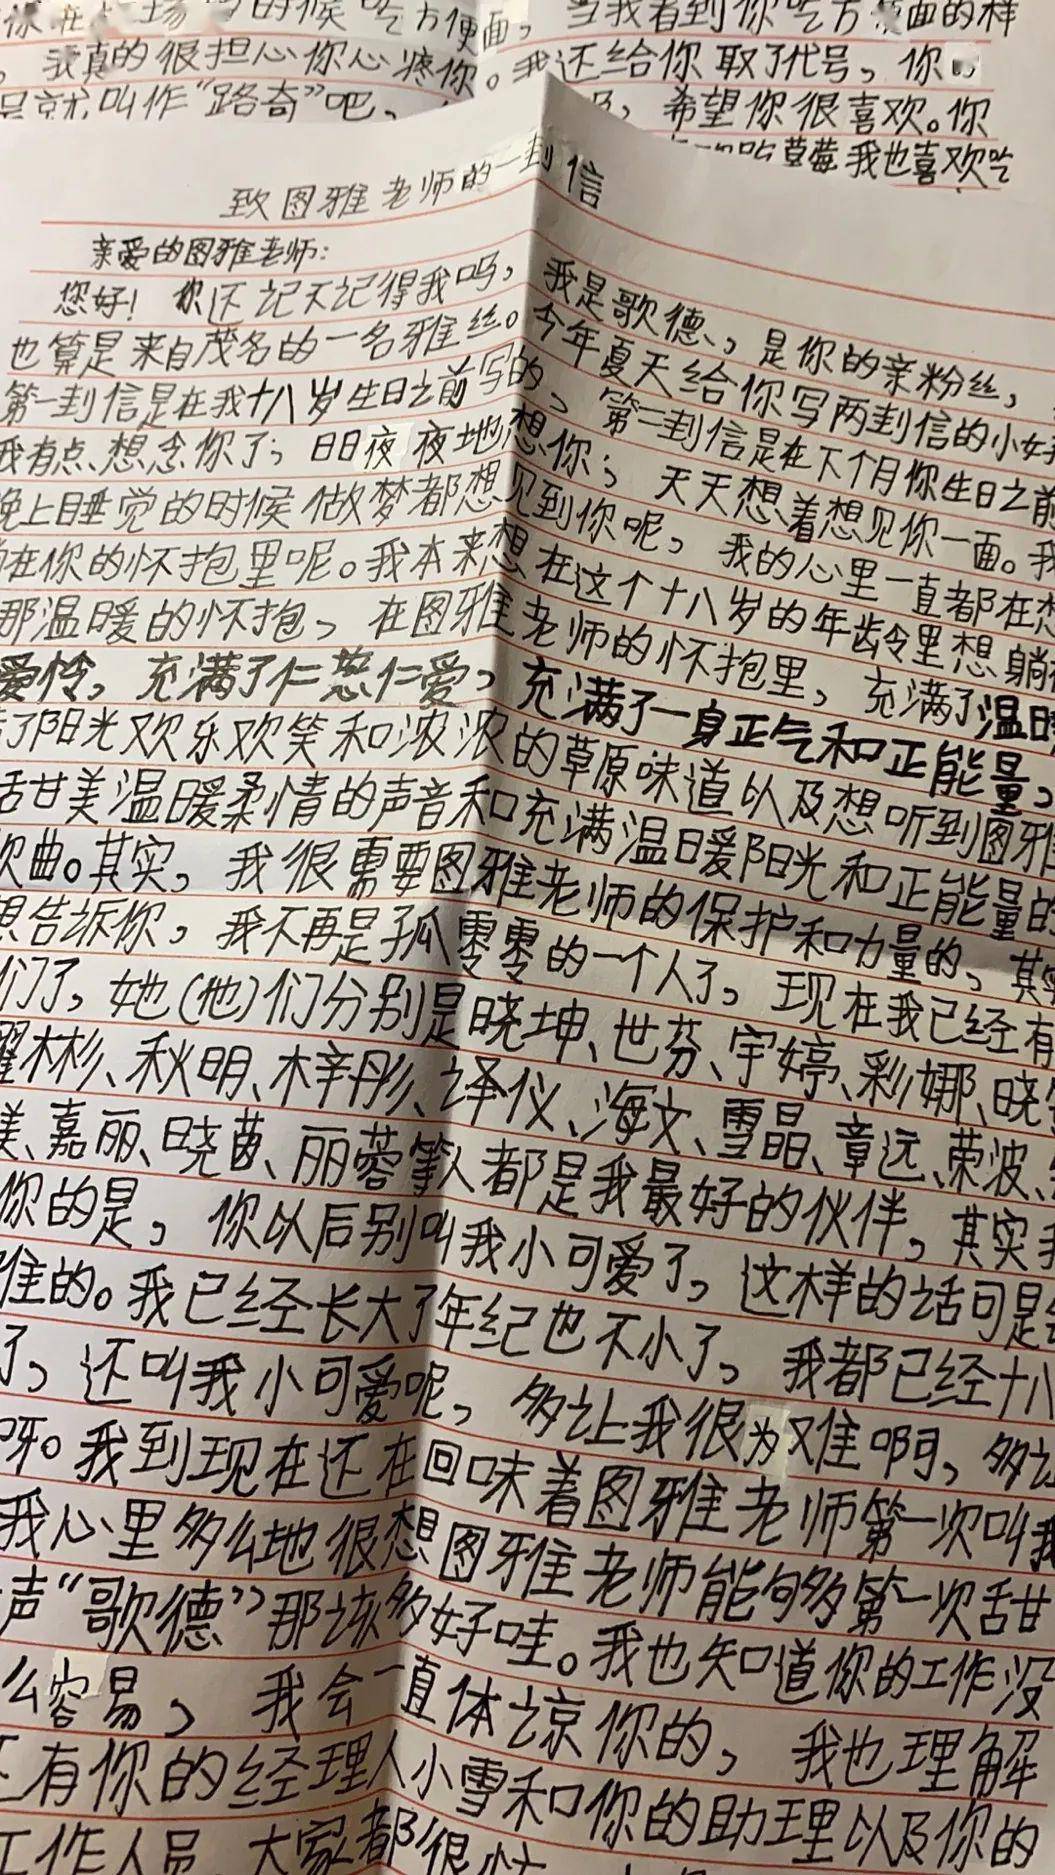 候吃方便面，当我看到你吃方便面的样
，我真的很担心你心疼你。我还给你取了代号，你
就叫作“路奇”吧，希望你很喜欢。你
吃草莓我也喜欢吃
致图雅老师的一封信
亲爱的图雅老师：
您好！你还记不记得我吗，我是歌德、，是你的亲粉丝，
也算是来自茂名的一名雅丝。今年夏天给你写两封信的小
第一封信是在我十八岁生日之前写的、第二封信是在下个月你生日之前
我有点想念你了，日日夜夜地想你；天天想着想见你一面。我
晚上睡觉的时候做梦都想见到你呢，我的心里一直都在想
在你的怀抱里呢。我本来想在这个十八岁的年龄里想躺
那温暖的怀抱、在图雅老师的怀抱里，充满了温
爱怜，充满了仁慈仁爱，充满了一身正气和正能量，
了阳光欢乐欢笑和浓浓的草原味道以及想听到图雅
甜美温暖柔情的声音和充满温暖阳光和正能量的
曲。其实，我很需要图雅老师的保护和力量的，其
想告诉你，我不再是孤零零的一个人了，现在我已经有
们了，她（他）们分别是晓坤、世芬、宇婷、彩娜、晓
彬、秋明、梓彤、泽仪、海文、雪晶、章远、荣波、
美、嘉丽、晓茵、丽蓉等人都是我最好的伙伴，其实我
你的是，你以后别叫我小可爱了，这样的话可是
难的。我已经长大了年纪也不小了，我都已经十八
了，还叫我小可爱呢，多让我很为难啊，多让
呀。我到现在还在回味着图雅老师第一次叫我
我心里多么地很想图雅老师能够多第一次甜
声“歌德”那该多好哇。我也知道你的工作没
么容易，我会一直体谅你的，我也理解
还有你的经理人小雪和你的助理以及你的
工作人员，大家都很忙